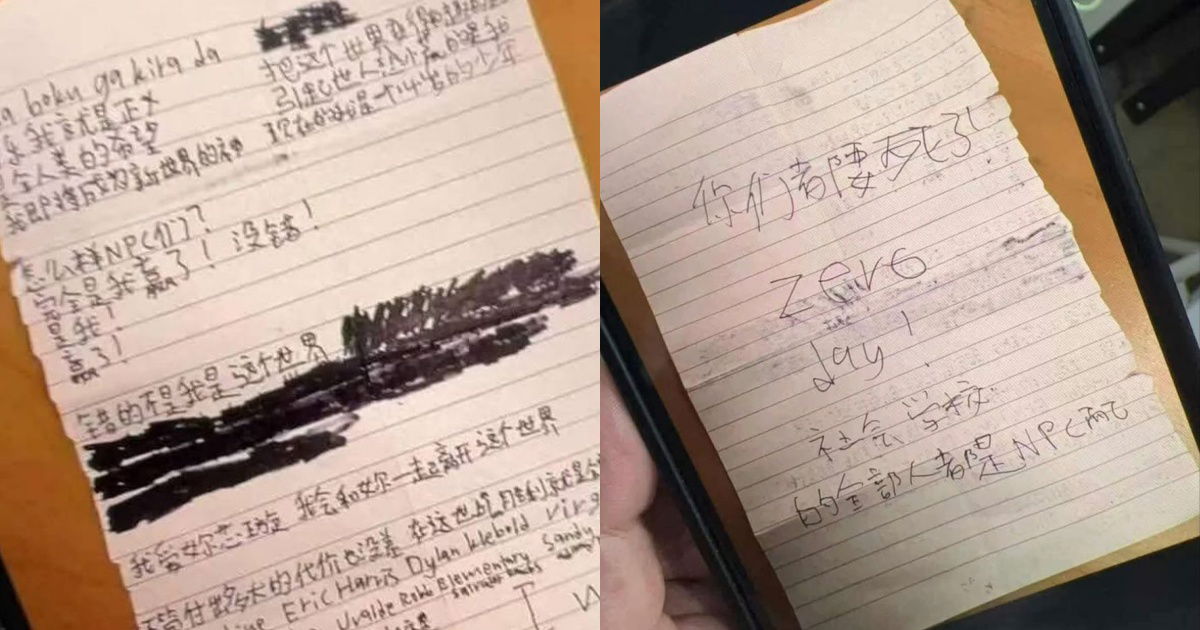 boku ga kira da
我就是正义
全人类的希望
我即将成为新世界的神
把这个世界变得
引起世人 的是我
现在的我是一个14岁的少年
怎么样NPC们?
完全是我赢了! 没错!
是我!
赢了!
错的不是我是这个世界
我爱妳 我会和妳一起离开这个世界
不管付出多大的代价也没差 在这世 胜利就是
Eric Harris Dylan Klebold
Uvalde Robb Elementary Sandy
你们都要死了!
zero
day!
社会学校
的全部人都是NPC而已